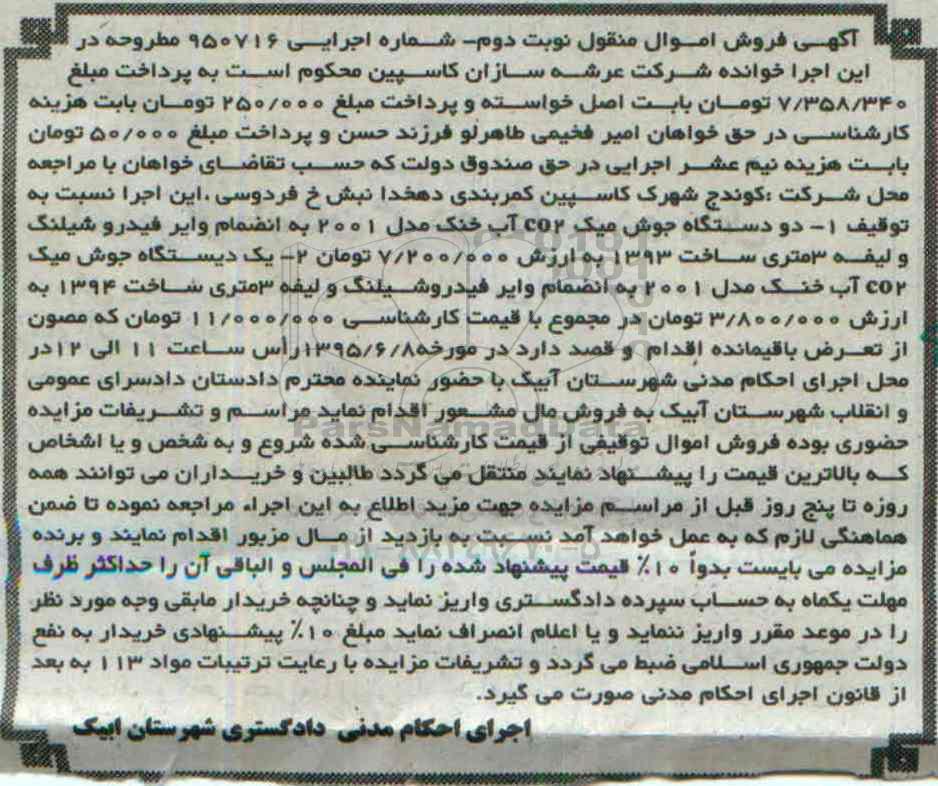 آگهی فروش اموال منقول نوبت دوم- شماره اجرایی ۹۵۰۷۱۶ مطروحه در
این اجرا خوانده شرکت عرشه سازان کاسپین محکوم است به پرداخت مبلغ
۷/۳۵۸/۳۴۰ تومان بابت اصل خواسته و پرداخت مبلغ ۲۵۰/۰۰۰ تومان بابت هزینه
کارشناسی در حق خواهان امیر فخیمی طاهرلو فرزند حسن و پرداخت مبلغ ۵۰/۰۰۰ تومان
بابت هزینه نیم عشر اجرایی در حق صندوق دولت که حسب تقاضای خواهان با مراجعه
محل شرکت :کوندج شهرک کاسپین کمربندی دهخدا نبش خ فردوسی .این اجرا نسبت به
توقیف ۱- دو دستگاه جوش میک CO۲ آب خنک مدل ۲۰۰۱ به انضمام وایر فیدرو شیلنگ
و لیفه ۳متری ساخت ۱۳۹۳ به ارزش ۷/۲۰۰/۰۰۰ تومان ۲- یک دیستگاه جوش میک
CO۲ آب خنک مدل ۲۰۰۱ به انضمام وایر فیدروشیلنگ و لیفه ۳متری ساخت ۱۳۹۴ به
ارزش ۳/۸۰۰/۰۰۰ تومان در مجموع با قیمت کارشناسی ۱۱/۰۰۰/۰۰۰ تومان که مصون
از تعرض باقیمانده اقدام و قصد دارد در مورخه۱۳۹۵/۶/۸رأس ساعت ۱۱ الی ۱۲در
محل اجرای احکام مدنی شهرستان آبیک با حضور نماینده محترم دادستان دادسرای عمومی
و انقلاب شهرستان آبیک به فروش مال مشعور اقدام نماید مراسم و تشریفات مزایده
حضوری بوده فروش اموال توقیفی از قیمت کارشناسی شده شروع و به شخص و یا اشخاص
که بالاترین قیمت را پیشنهاد نمایند منتقل می گردد طالبین و خریداران می توانند همه
روزه تا پنج روز قبل از مراسم مزایده جهت مزید اطلاع به این اجراء مراجعه نموده تا ضمن
هماهنگی لازم که به عمل خواهد آمد نسبت به بازدید از مال مزبور اقدام نمایند و برنده
مزایده می بایست بدواً ۱۰٪ قیمت پیشنهاد شده را فی المجلس و الباقی آن را حداکثر ظرف
مهلت یکماه به حساب سپرده دادگستری واریز نماید و چنانچه خریدار مابقی وجه مورد نظر
را در موعد مقرر واریز ننماید و یا اعلام انصراف نماید مبلغ ۱۰٪ پیشنهادی خریدار به نفع
دولت جمهوری اسلامی ضبط می گردد و تشریفات مزایده با رعایت ترتیبات مواد ۱۱۳ به بعد
از قانون اجرای احکام مدنی صورت می گیرد.
اجرای احکام مدنی دادگستری شهرستان ابیک
ParsNamadData